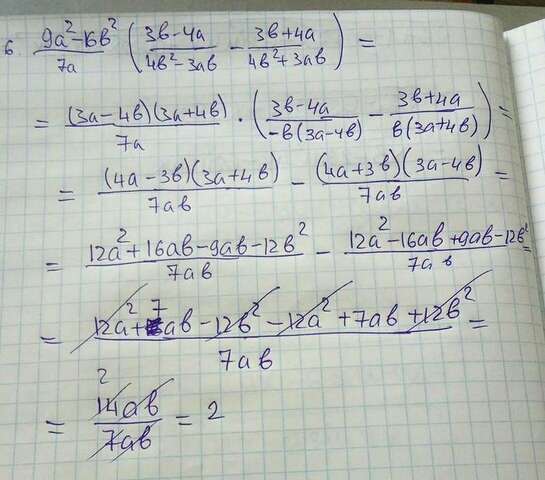 6. (9a²-16b²)/(7a) ((3b-4a)/(4b²-3ab) - (3b+4a)/(4b²+3ab)) =
= ((3a-4b)(3a+4b))/(7a) · ((3b-4a)/(-b(3a-4b)) - (3b+4a)/(b(3a+4b))) =
= ((4a-3b)(3a+4b))/(7ab) - ((4a+3b)(3a-4b))/(7ab) =
= (12a²+16ab-9ab-12b²)/(7ab) - (12a²-16ab+9ab-12b²)/(7ab) =
= (12a²+7ab-12b²-12a²+7ab+12b²)/(7ab) =
2
= (14ab)/(7ab) = 2